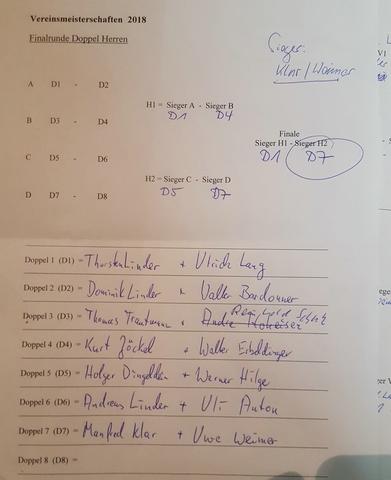 Vereinsmeisterschaften 2018
Finalrunde Doppel Herren
Sieger:
Klar / Weimer
A D1 - D2
H1 = Sieger A - Sieger B
D1 D4
B D3 - D4
Finale
Sieger H1 - Sieger H2
D1 D7
C D5 - D6
H2 = Sieger C - Sieger D
D5 D7
D D7 - D8
Doppel 1 (D1) = Thorsten Linder + Ulrich Lang
Doppel 2 (D2) = Dominik Linder + Volker
Reinhold
Doppel 3 (D3) = Thomas Trautmann + Andre
Doppel 4 (D4) = Kurt Göckel + Walter
Doppel 5 (D5) = Holger + Werner Hilge
Doppel 6 (D6) = Andreas Linder + Uli Anton
Doppel 7 (D7) = Manfred Klar + Uwe Weimer
Doppel 8 (D8) =